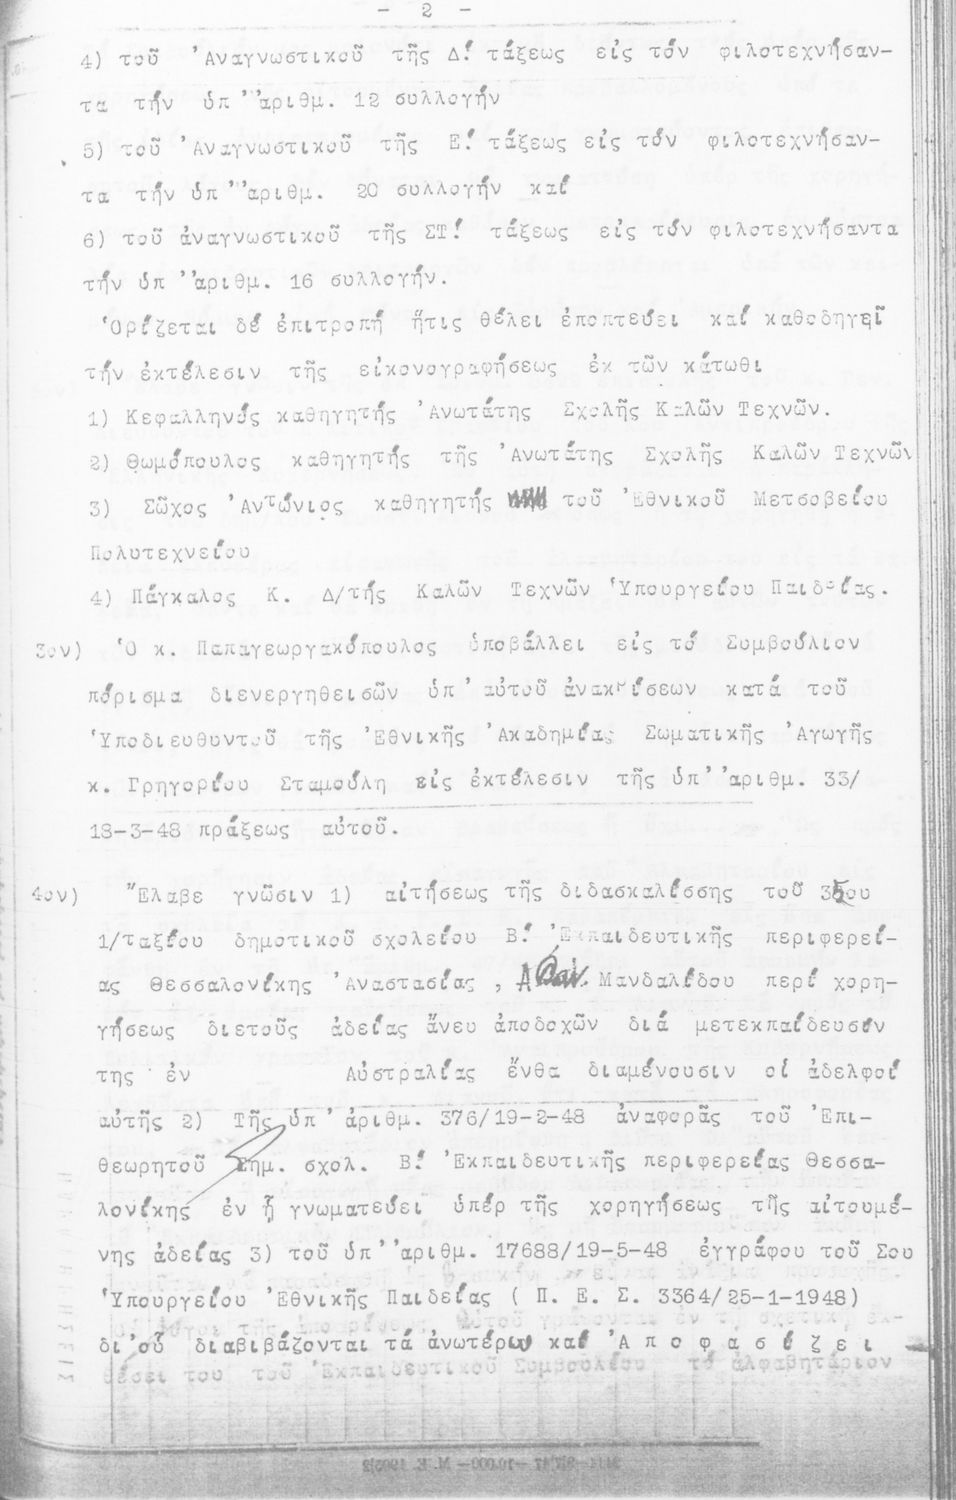 - 2 -
4) τοῦ Ἀναγνωστικοῦ τῆς Δ! τάξεως εἰς τόν φιλοτεχνήσαν-
τα τήν ὑπ' ἀριθμ. 12 συλλογήν
5) τοῦ Ἀναγνωστικοῦ τῆς Ε! τάξεως εἰς τόν φιλοτεχνήσαν-
τα τήν ὑπ' ἀριθμ. 20 συλλογήν καί
6) τοῦ ἀναγνωστικοῦ τῆς ΣΤ! τάξεως εἰς τόν φιλοτεχνήσαντα
τήν ὑπ' ἀριθμ. 16 συλλογήν.
Ὁρίζεται δέ ἐπιτροπή ἥτις θέλει ἐποπτεύει καί καθοδηγεῖ
τήν ἐκτέλεσιν τῆς εἰκονογραφήσεως ἐκ τῶν κάτωθι
1) Κεφαλληνός καθηγητής Ἀνωτάτης Σχολῆς Καλῶν Τεχνῶν.
2) Θωμόπουλος καθηγητής τῆς Ἀνωτάτης Σχολῆς Καλῶν Τεχνῶν
3) Σῶχος Ἀντώνιος καθηγητής τοῦ Ἐθνικοῦ Μετσοβείου
Πολυτεχνείου
4) Πάγκαλος Κ. Δ/τής Καλῶν Τεχνῶν Ὑπουργείου Παιδείας.
3ον) Ὁ κ. Παπαγεωργακόπουλος ὑποβάλλει εἰς τό Συμβούλιον
πόρισμα διενεργηθεισῶν ὑπ' αὐτοῦ ἀνακρίσεων κατά τοῦ
Ὑποδιευθυντοῦ τῆς Ἐθνικῆς Ἀκαδημίας Σωματικῆς Ἀγωγῆς
κ. Γρηγορίου Σταμούλη εἰς ἐκτέλεσιν τῆς ὑπ' ἀριθμ. 33/
18-3-48 πράξεως αὐτοῦ.
4ον) Ἔλαβε γνῶσιν 1) αἰτήσεως τῆς διδασκαλίσσης τοῦ 35ου
1/ταξίου δημοτικοῦ σχολείου Β! Ἐκπαιδευτικῆς περιφερεί-
ας Θεσσαλονίκης Ἀναστασίας , Μανδαλίδου περί χορη-
γήσεως διετοῦς ἀδείας ἄνευ ἀποδοχῶν διά μετεκπαίδευσίν
της ἐν Αὐστραλίας ἔνθα διαμένουσιν οἱ ἀδελφοί
αὐτῆς 2) Τῆς ὑπ' ἀριθμ. 376/19-2-48 ἀναφορᾶς τοῦ Ἐπι-
θεωρητοῦ δημ. σχολ. Β! Ἐκπαιδευτικῆς περιφερείας Θεσσα-
λονίκης ἐν ᾗ γνωματεύει ὑπέρ τῆς χορηγήσεως τῆς αἰτουμέ-
νης ἀδείας 3) τοῦ ὑπ' ἀριθμ. 17688/19-5-48 ἐγγράφου τοῦ Σου
Ὑπουργείου Ἐθνικῆς Παιδείας ( Π. Ε. Σ. 3364/25-1-1948)
δι' οὗ διαβιβάζονται τά ἀνωτέρω καί Ἀ π ο φ α σ ί ζ ε ι
θέσει του τοῦ Ἐκπαιδευτικοῦ Συμβουλίου τό ἀλφαβητάριον